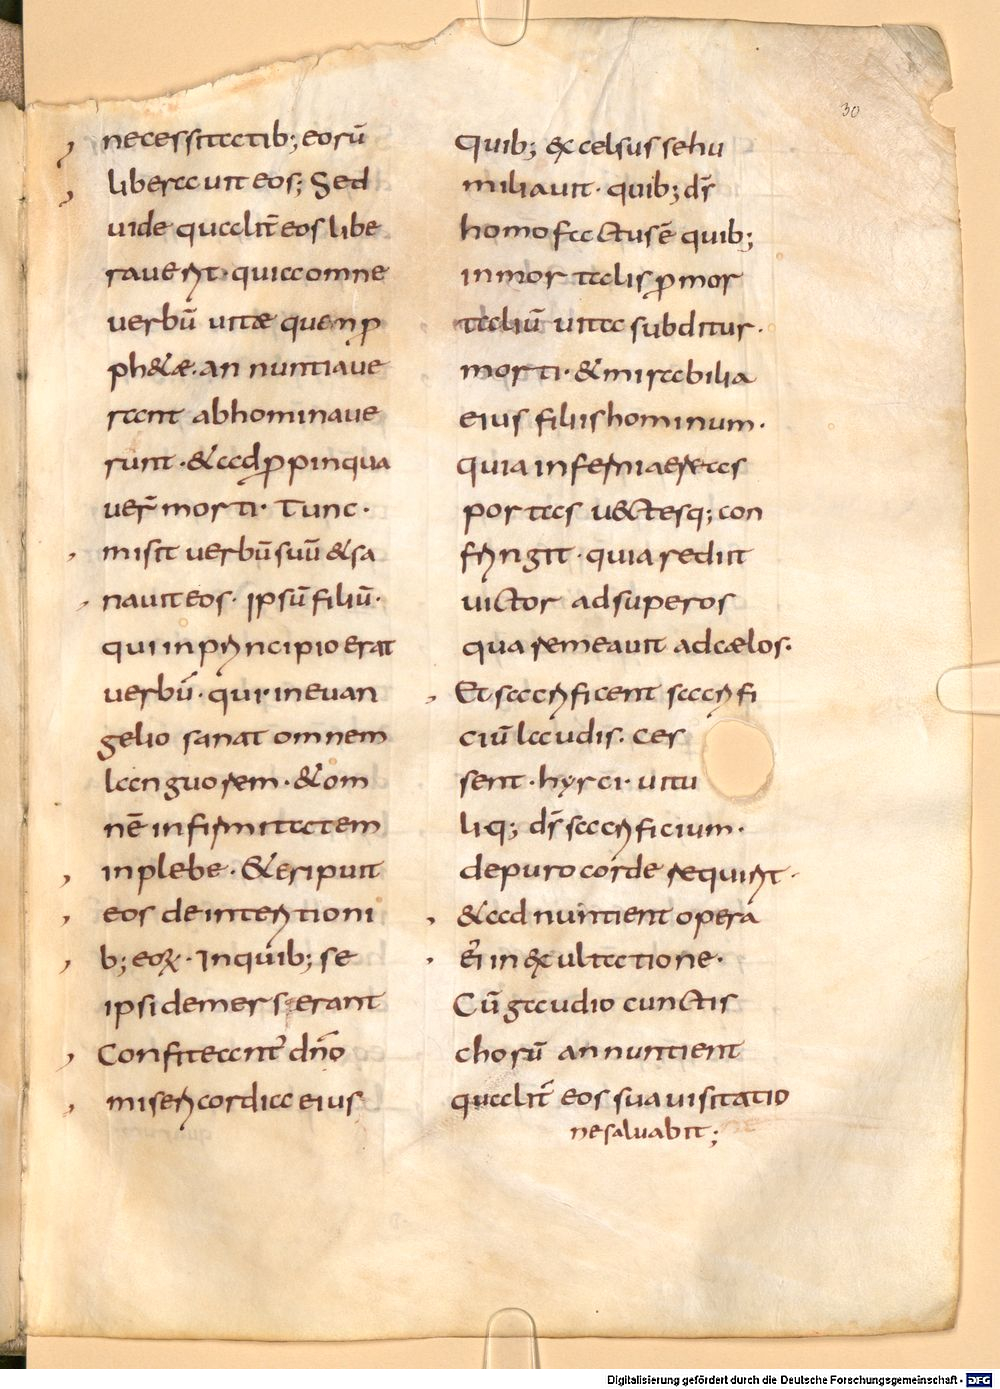 30
necessitatib; eorū
liberauit eos; Sed
uide qualit̄ eos libe
rauerit quia omne
uerbū uitae quem p̱
ph&ae. annuntiaue
rant abhominaue
runt · & adp̱pinqua
uer̄ morti · Tunc ·
misit uerbū suū & sa
nauit eos · ipsū filiū ·
qui in principio erat
uerbū · qui in euan
gelio sanat omnem
languorem · & om
nē infirmitatem
in plebe · & eripuit
eos de interitioni
b; eoꝝ · In quib; se
ipsi demerserant
Confiteant̄ dn̄o
misericordiae eius
quib; excelsus se hu
miliauit · quib; dr̄
homo factus ē quib;
in mortalis p̱ mor
taliū uita subditur ·
morti · & mirabilia
eius filiis hominum ·
quia inferni aereas
portas uectesq; con
fringit · quia rediit
uictor ad superos
qua remeauit ad caelos ·
Et sacrificent sacrifi
ciū laudis · Ces
sent · hyrci · uitu
liq; dr̄ sacrificium ·
de puro corde requirit ·
& adnuntient opera
ei in exultatione ·
Cū gaudio cunctis
chorū annuntient
qualit̄ eos sua uisitatio
ne saluabit;
Digitalisierung gefördert durch die Deutsche Forschungsgemeinschaft - DFG